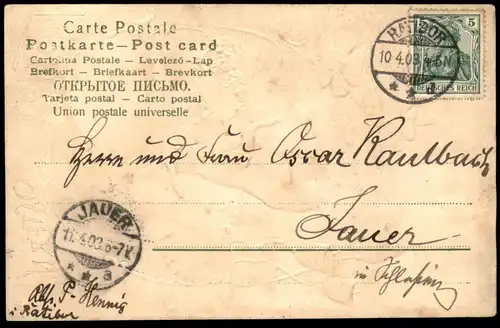 Carte Postale
Postkarte — Post card
Cartolina Postale – Levelező-Lap
Brefkort – Briefkaart – Brevkort
ОТКРЫТОЕ ПИСЬМО.
Tarjeta postal – Carto postal
Union postale universelle
5
DEUTSCHES REICH
RATIBOR
10 4.03. 4-5N
Herrn und Frau Oscar Kaulbach
Jauer
in Schlesien
JAUER
11.4.03. 6-7V.
a
Abs. P. Hennig
i Ratibor